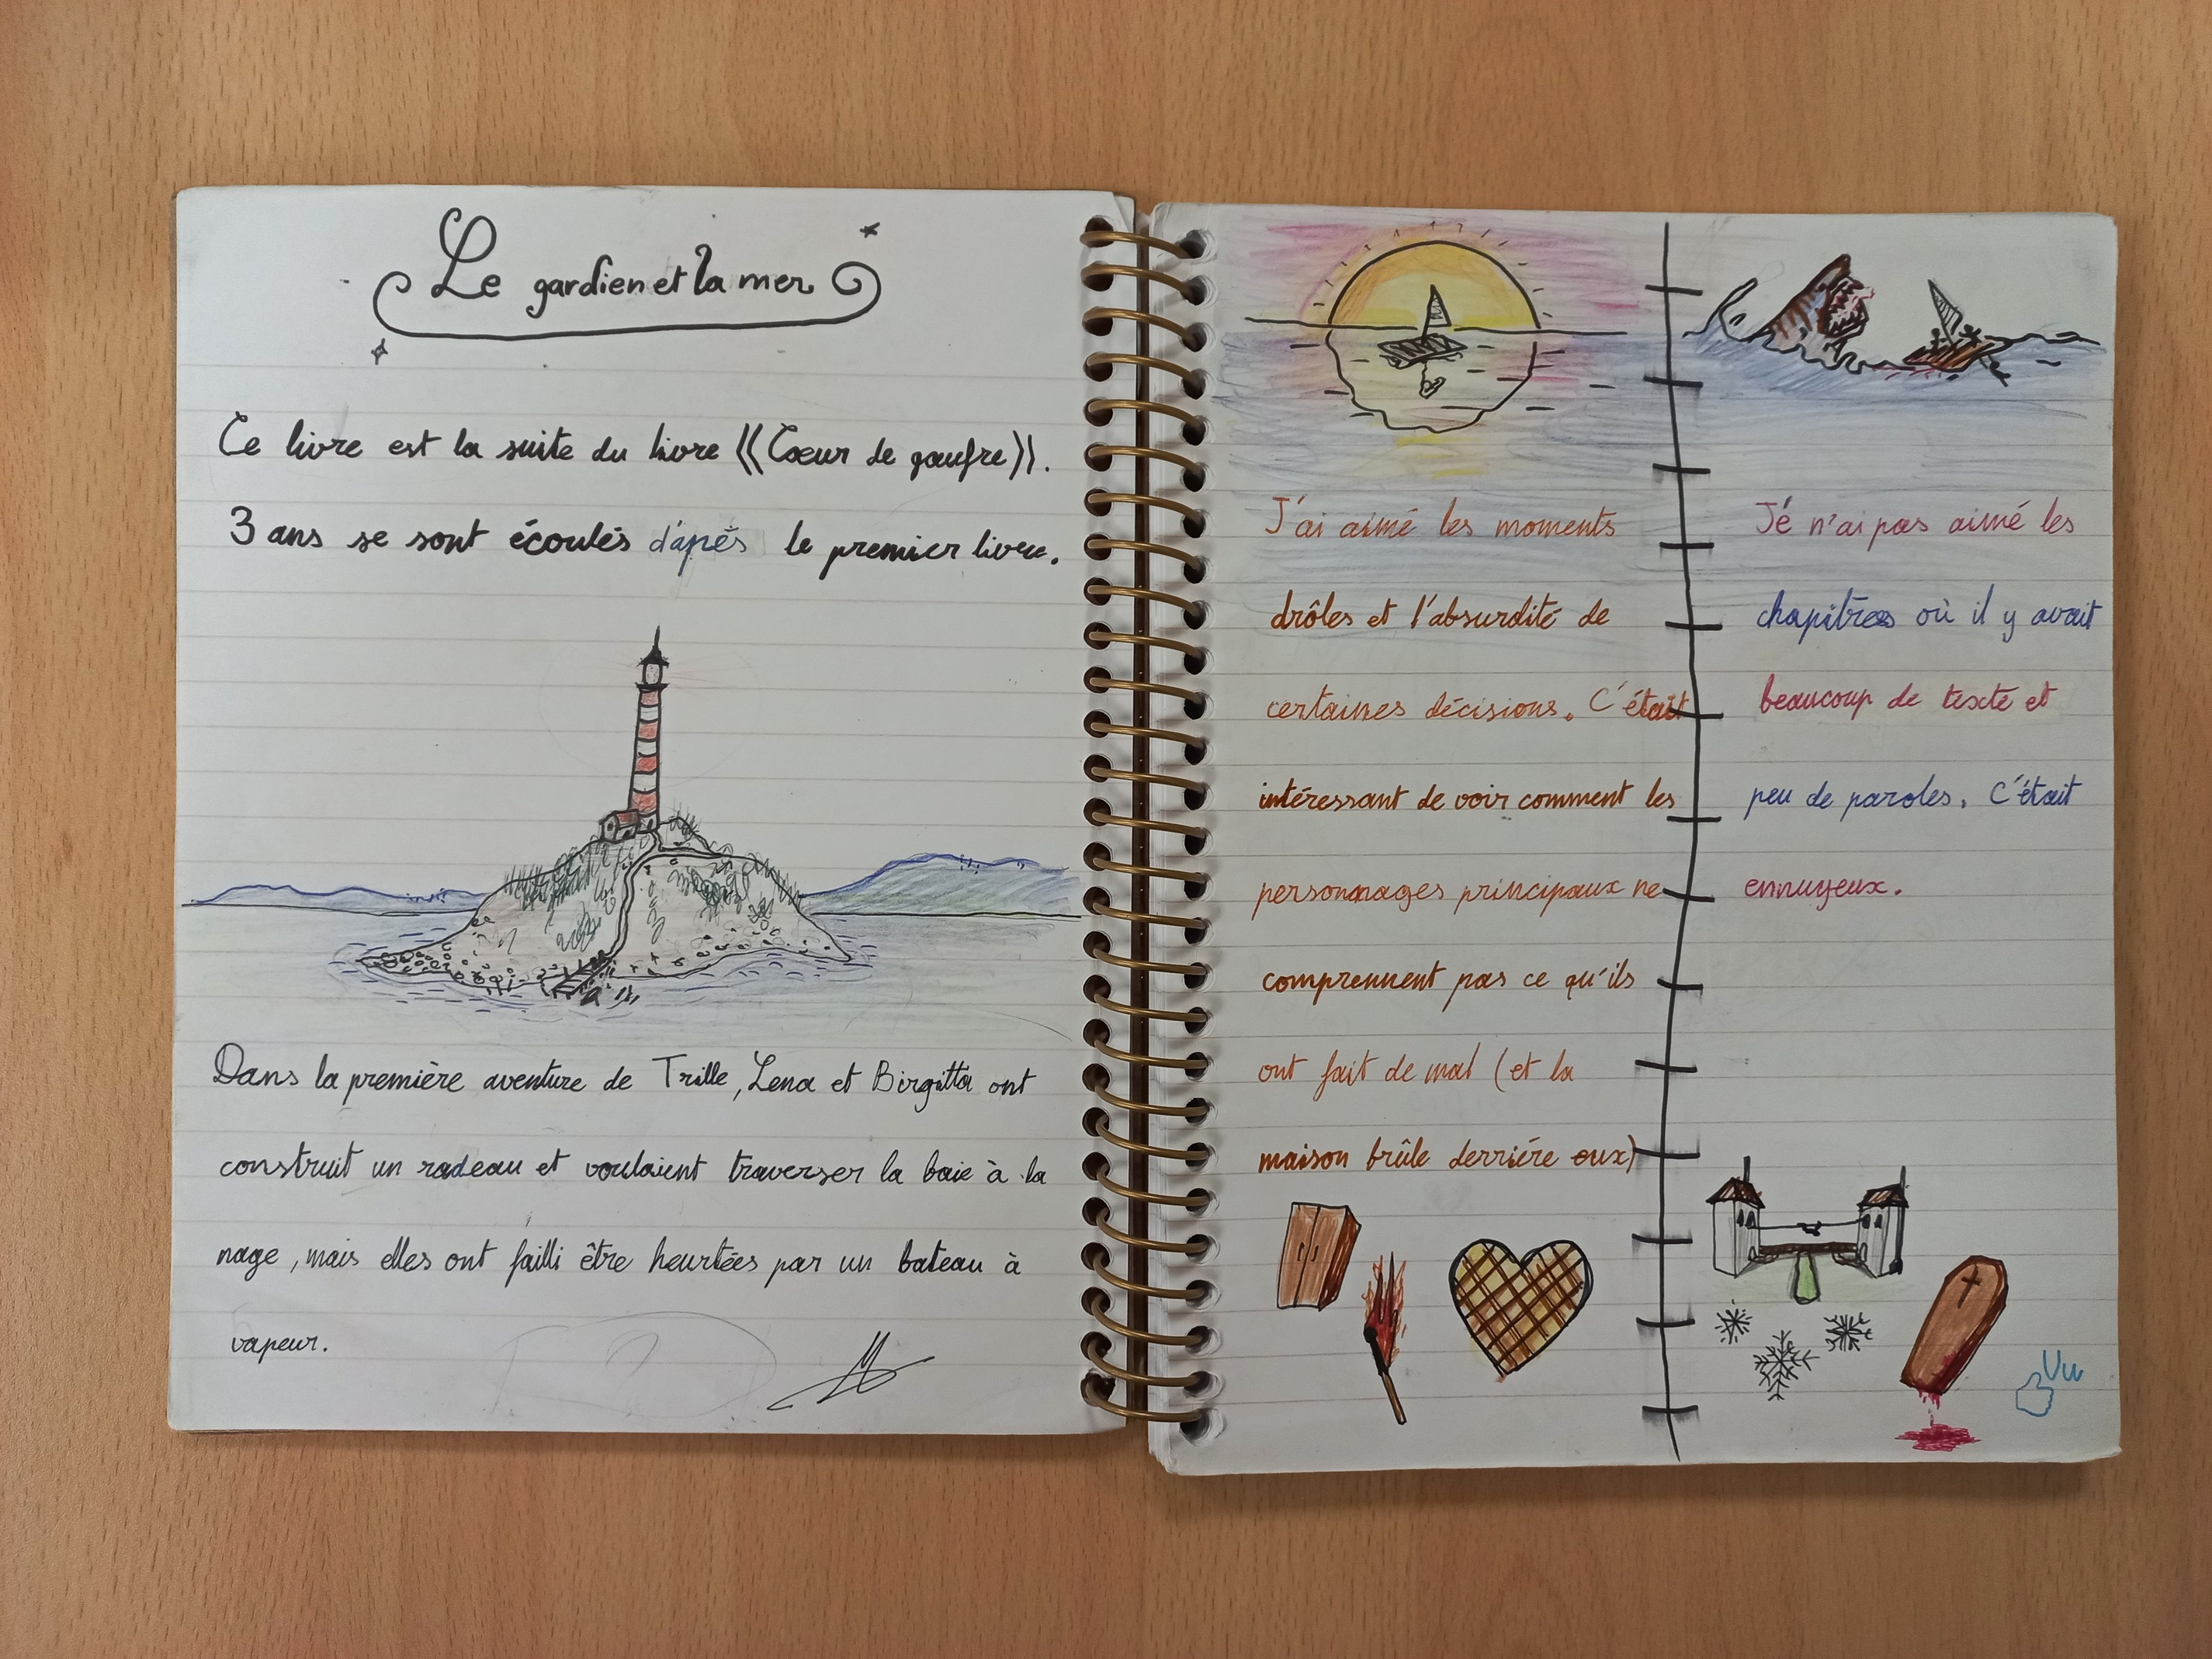 Le gardien et la mer
Ce livre est la suite du livre «Cœur de gaufre».
3 ans se sont écoulés d'apés le premier livre.
Dans la première aventure de Trille, Lena et Birgitta ont
construit un radeau et voulaient traverser la baie à la
nage, mais elles ont failli être heurtées par un bateau à
vapeur.
J'ai aimé les moments
drôles et l'absurdité de
certaines décisions. C'était
intéressant de voir comment les
personnages principaux ne
comprennent pas ce qu'ils
ont fait de mal (et la
maison brûle derriére eux)
Jé n'ai pas aimé les
chapitres où il y avait
beaucoup de texte et
peu de paroles. C'était
ennuyeux.
Vu